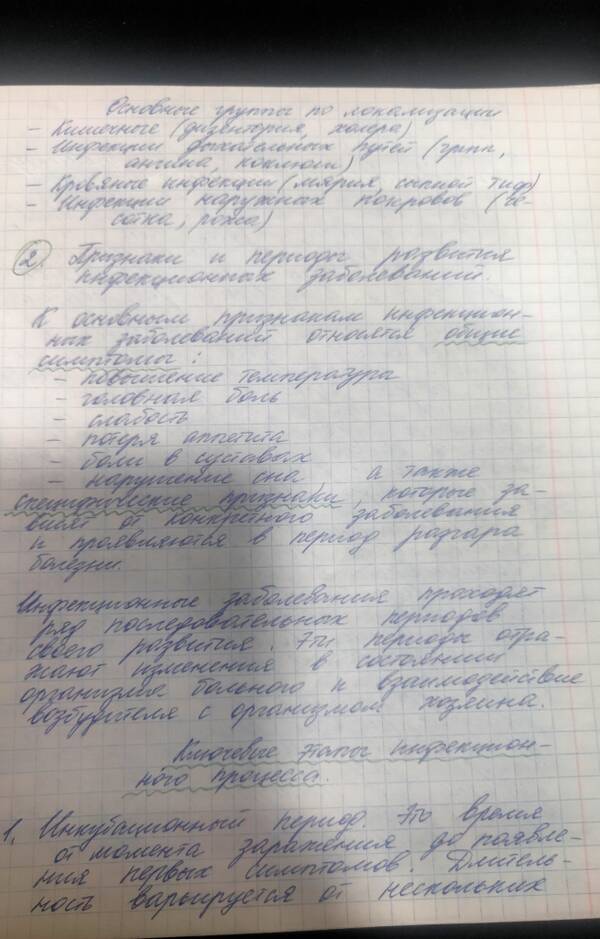 Основные группы по локализации
– Кишечные (дизентерия, холера)
– Инфекции дыхательных путей (грипп,
ангина, коклюш)
– Кровяные инфекции (мярия, сыпной тиф)
– Инфекции наружных покровов (че-
сотка, рожа)
2. Признаки и периоды развития
инфекционных заболеваний.
К основным признакам инфекцион-
ных заболеваний относятся общие
симптомы:
– повышение температура
– головная боль
– слабость
– потеря аппетита
– боли в суставах
– нарушение сна а также
специфические признаки, которые за-
висят от конкретного заболевания
и проявляются в период разгара
болезни.
Инфекционные заболевания проходят
ряд последовательных периодов
своего развития. Эти периоды отра-
жают изменения в состоянии
организма больного и взаимодействие
возбудителя с организмом хозяина.
Ключевые этапы инфекцион-
ного процесса.
1. Инкубационный период. Это время
от момента заражения до появле-
ния первых симптомов. Длитель-
ность варьируется от нескольких